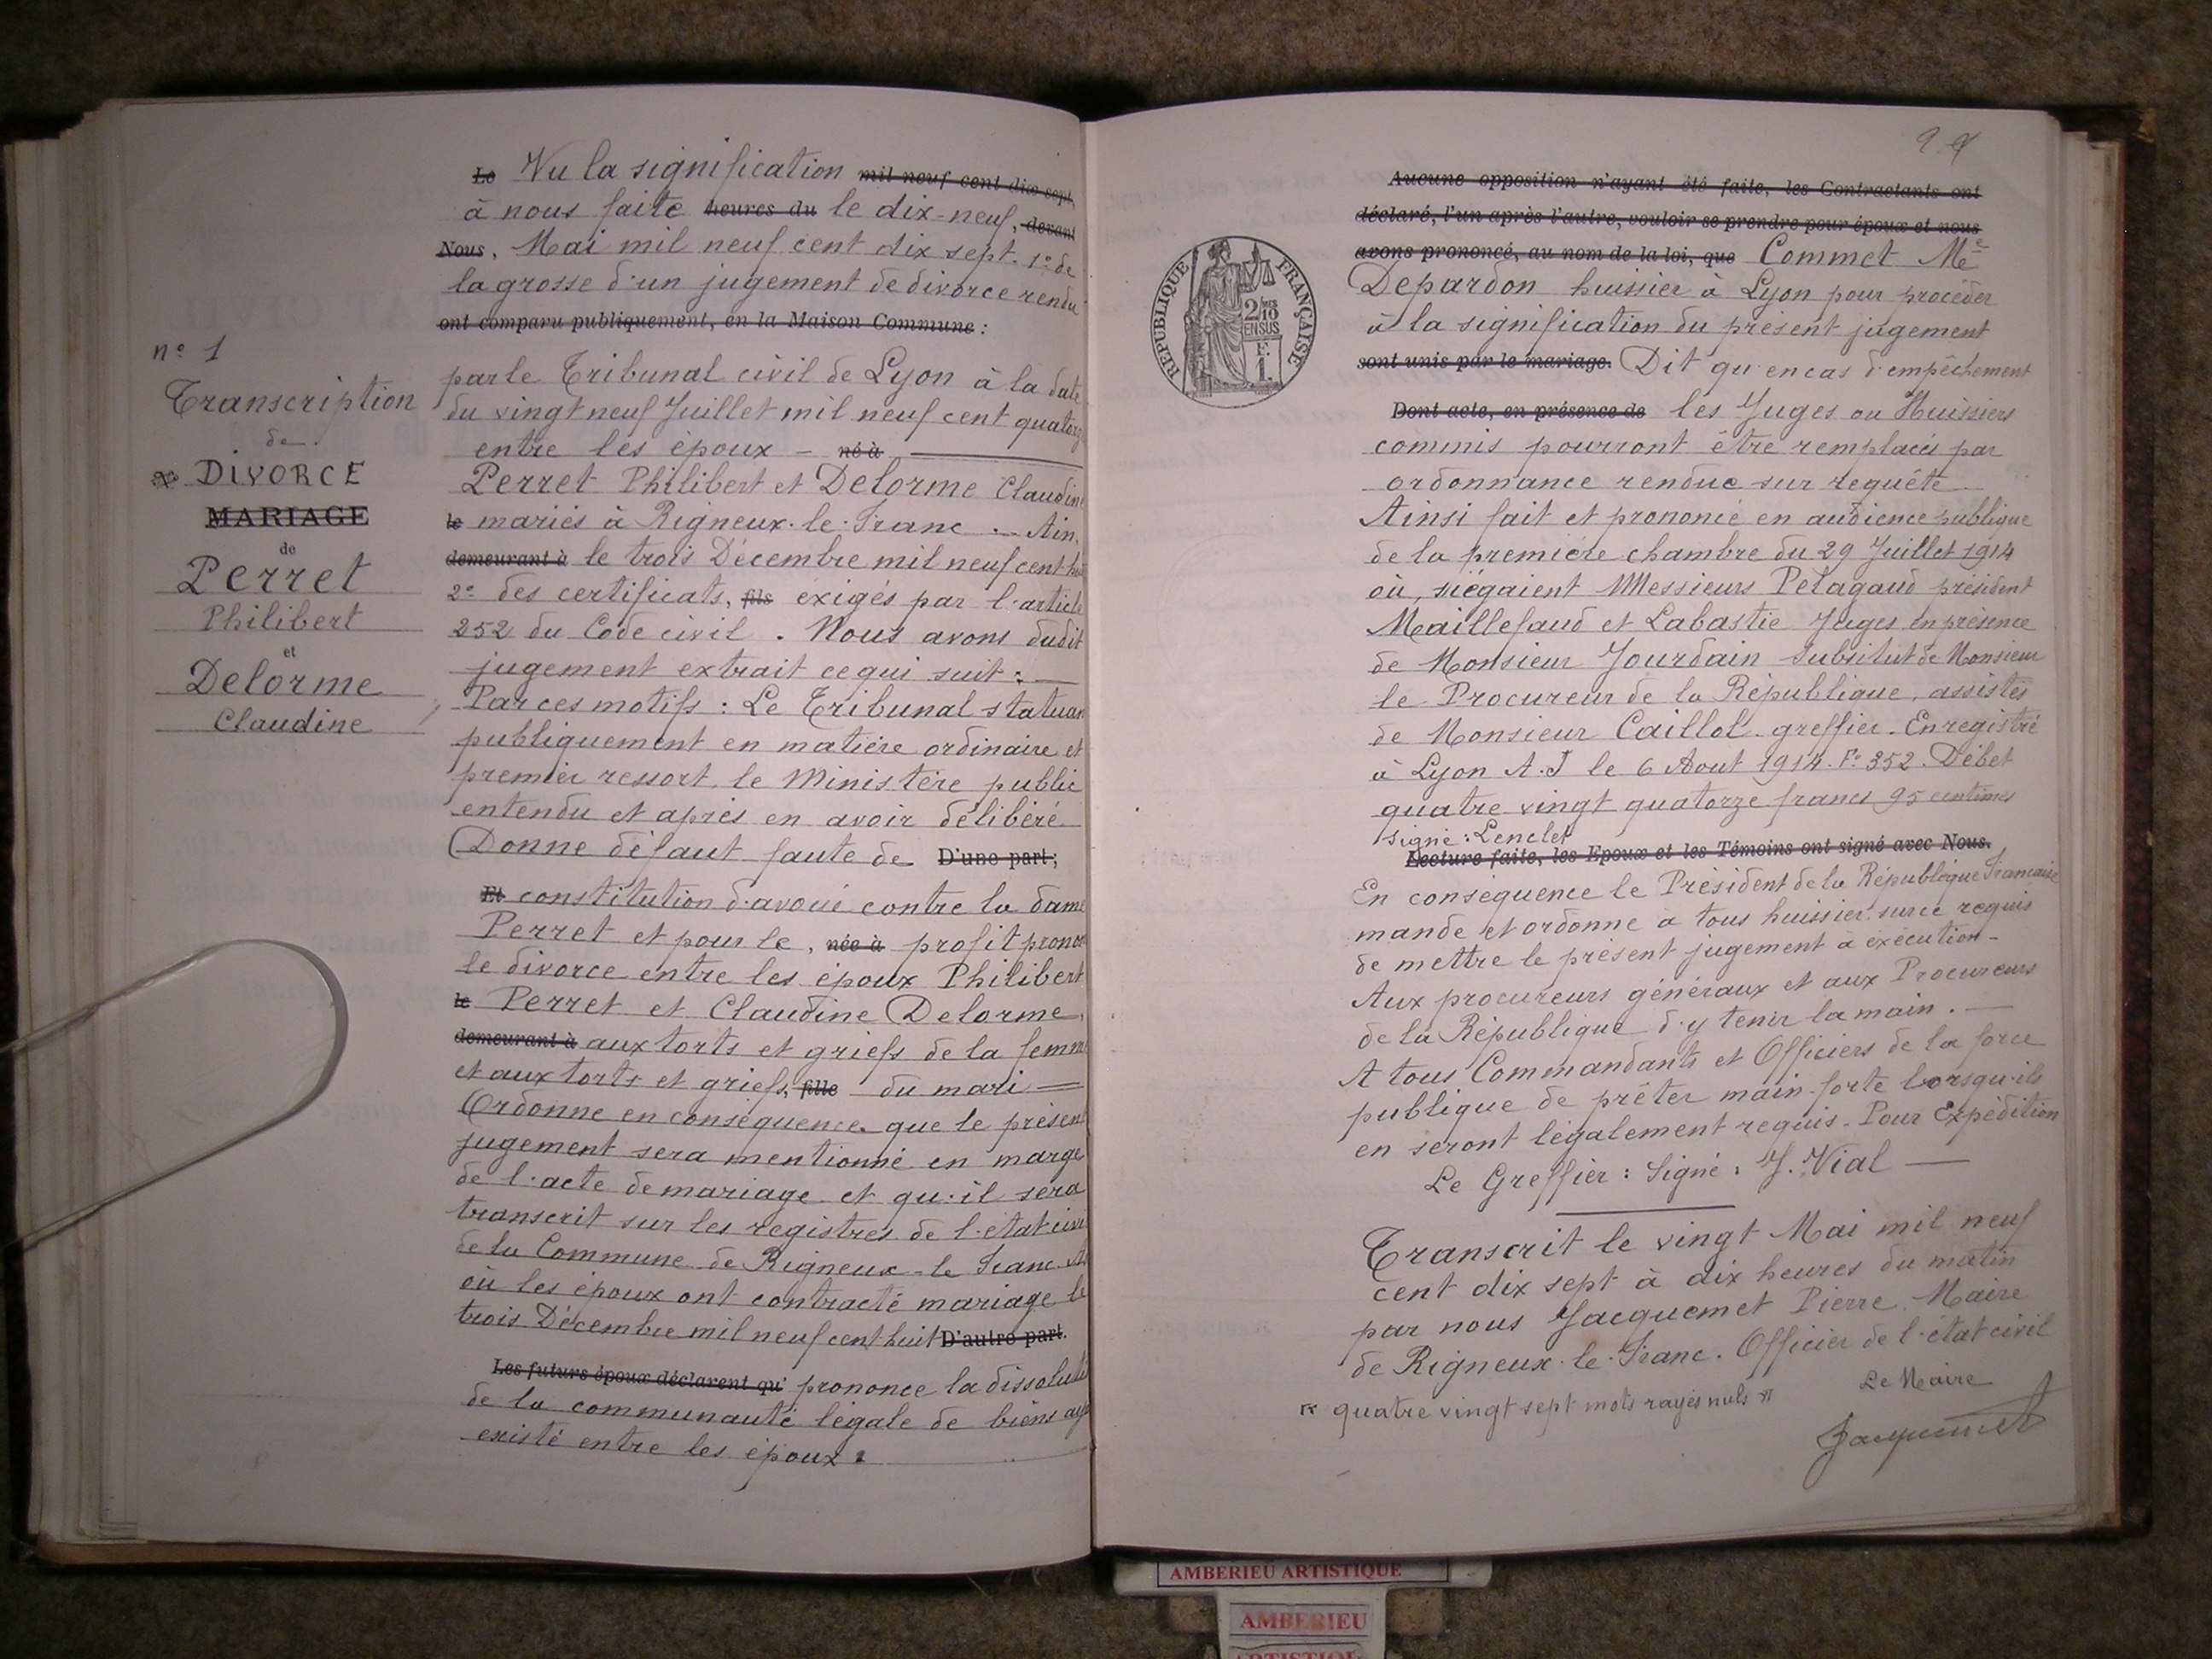 n° 1
Transcription
de
DIVORCE
MARIAGE
de
Perret
Philibert
et
Delorme
Claudine
Le Vu la signification mil neuf cent dix-sept,
à nous faite heures du le dix-neuf, devant
Nous, Mai mil neuf cent dix sept. 1° de
la grosse d'un jugement de divorce rendu
ont comparu publiquement, en la Maison Commune :
par le Tribunal civil de Lyon à la date
du vingt neuf Juillet mil neuf cent quatorz
entre les époux - né à
Perret Philibert et Delorme Claudine
le mariés à Rigneux-le-Franc - Ain,
demeurant à le trois Décembre mil neuf cent hui
2° des certificats, fils exigés par l'article
252 du Code civil. Nous avons dudit
jugement extrait ce qui suit :
Par ces motifs : Le Tribunal statuan
publiquement en matière ordinaire et
premier ressort, le Ministère public
entendu et après en avoir délibéré
Donne défaut faute de D'une part;
Et constitution d'avoué contre la dame
Perret et pour le, née à profit prono
le divorce entre les époux Philibert
le Perret et Claudine Delorme,
demeurant à aux torts et griefs de la femm
et aux torts et griefs, fille du mari
Ordonne en conséquence que le présen
jugement sera mentionné en marge
de l'acte de mariage et qu'il sera
transcrit sur les registres de l'état civi
de la Commune de Rigneux-le-Franc
où les époux ont contracté mariage le
trois Décembre mil neuf cent huit D'autre part.
Les futurs époux déclarent qu' prononce la dissoluti
de la communauté légale de biens ay
existé entre les époux.
RÉPUBLIQUE FRANÇAISE
2/10
EN SUS
F.
1.
Aucune opposition n'ayant été faite, les Contractants ont
déclaré, l'un après l'autre, vouloir se prendre pour époux et nous
avons prononcé, au nom de la loi, que Commet Me
Depardon huissier à Lyon pour procéder
à la signification du présent jugement
sont unis par le mariage. Dit qu'en cas d'empêchement
Dont acte, en présence de les Juges ou Huissiers
commis pourront être remplacés par
ordonnance rendue sur requête
Ainsi fait et prononcé en audience publique
de la première chambre du 29 Juillet 1914
où siégaient Messieurs Pélagaud président
Maillefaud et Labastie Juges, en présence
de Monsieur Jourdain Subsitut de Monsieur
le Procureur de la République, assistés
de Monsieur Caillol greffier. Enregistré
à Lyon A.J le 6 Aout 1914. F° 352. Débet
quatre vingt quatorze francs 95 centimes
Signé : Lenclet
Lecture faite, les Epoux et les Témoins ont signé avec Nous.
En conséquence le Président de la République Française
mande et ordonne à tous huissiers sur ce requis
de mettre le présent jugement à exécution -
Aux procureurs généraux et aux Procureurs
de la République d'y tenir la main.
A tous Commandants et Officiers de la force
publique de prêter main-forte lorsqu'ils
en seront légalement requis - Pour Expédition
Le Greffier : Signé : J. Vial
Transcrit le vingt Mai mil neuf
cent dix sept à dix heures du matin
par nous Jacquemet Pierre Maire
de Rigneux-le-Franc. Officier de l'état civil
quatre vingt sept mots rayés nuls
Le Maire
Jacquemet
AMBERIEU ARTISTIQUE
AMBERIEU
ARTISTIQUE